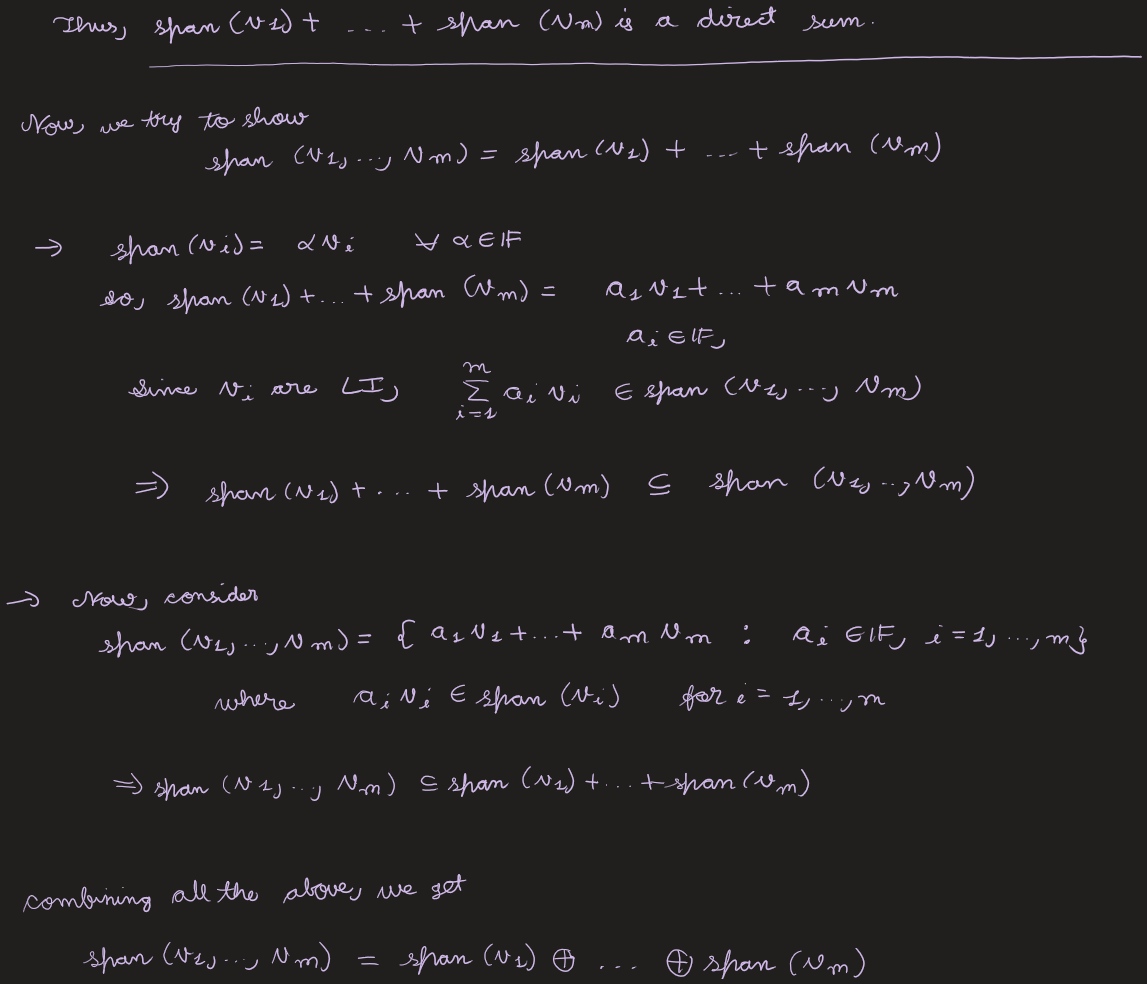 Thus, span (v1) + ... + span (vm) is a direct sum.
Now, we try to show
span (v1, ..., vm) = span (v1) + ... + span (vm)
→ span (vi) = αvi ∀ α ∈ 𝔽
so, span (v1) + ... + span (vm) = a1v1 + ... + amvm
ai ∈ 𝔽,
since vi are LI, ∑_{i=1}^{m} aivi ∈ span (v1, ..., vm)
⇒ span (v1) + ... + span (vm) ⊆ span (v1, .., vm)
→ Now, consider
span (v1, .., vm) = { a1v1 + ... + amvm : ai ∈ 𝔽, i = 1, ..., m}
where aivi ∈ span (vi) for i = 1, .., m
⇒ span (v1, .., vm) ⊆ span (v1) + ... + span (vm)
combining all the above, we get
span (v1, ..., vm) = span (v1) ⊕ ... ⊕ span (vm)